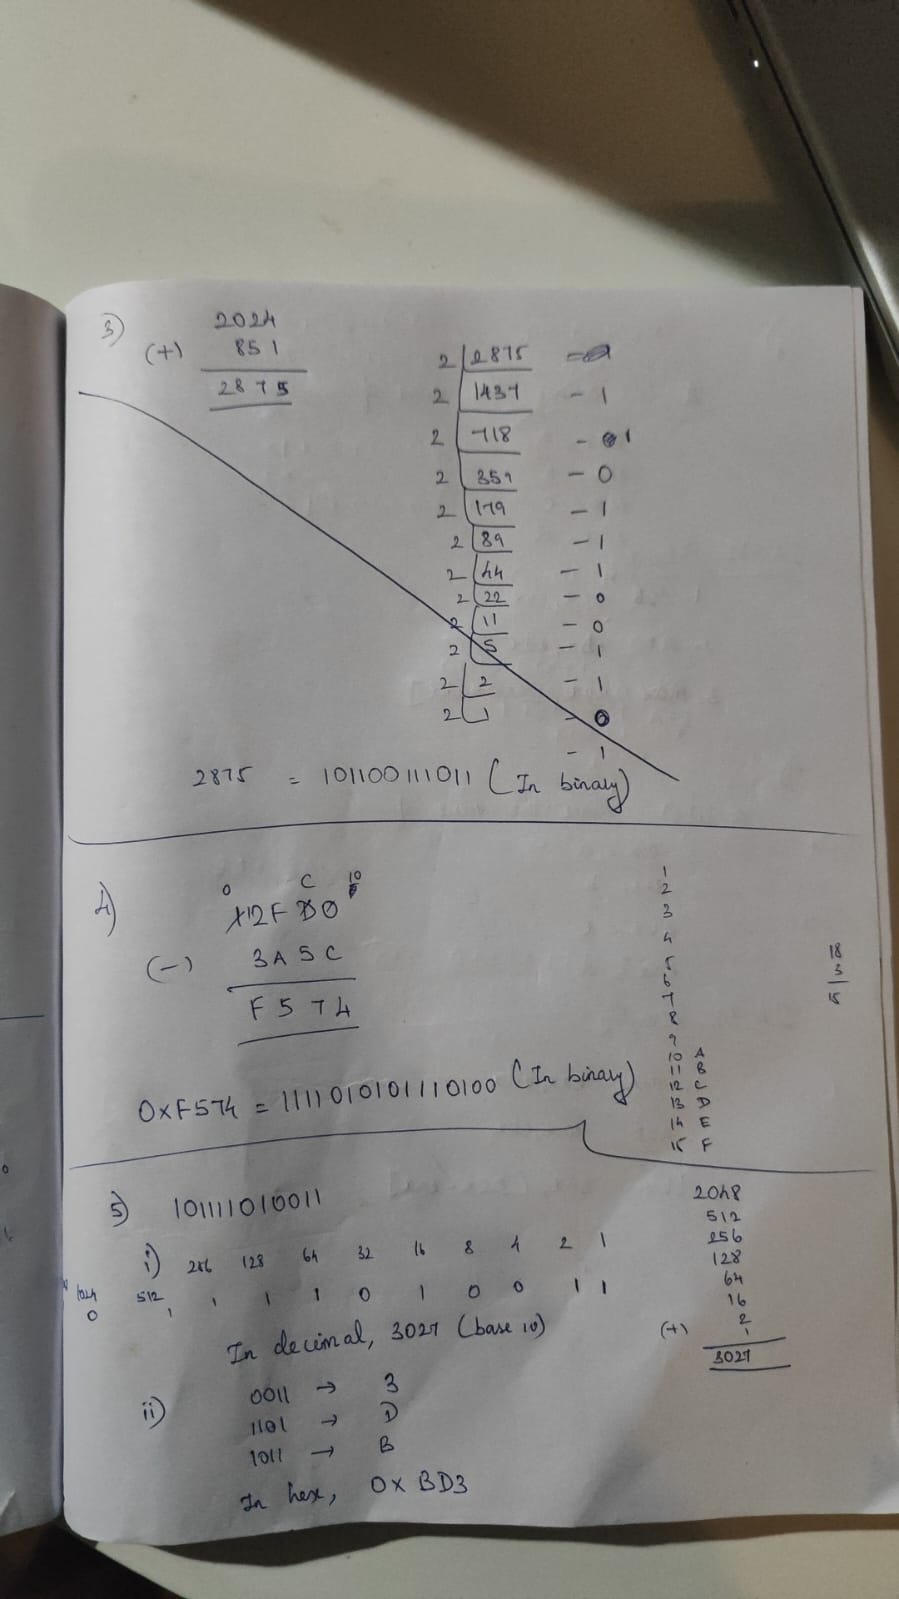 3)
2024
(+) 851
2875
2 2875
2 1437 - 1
2 718 - 1
2 359 - 0
2 179 - 1
2 89 - 1
2 44 - 1
2 22 - 0
2 11 - 0
2 5 - 1
2 2 - 1
2 1 - 0
- 1
2875 = 101100111011 (In binary)
4)
0 C 10
12FD0
(-) 3A5C
F574
0xF574 = 1111010101110100 (In binary)
1
2
3
4
5
6
7
8
9
10 A
11 B
12 C
13 D
14 E
15 F
18
3
15
5) 101111010011
i) 256 128 64 32 16 8 4 2 1
1024 512
0 1 1 1 1 0 1 0 0 1 1
In decimal, 3027 (base 10)
2048
512
256
128
64
16
2
(+) 1
3027
ii) 0011 → 3
1101 → D
1011 → B
In hex, 0x BD3